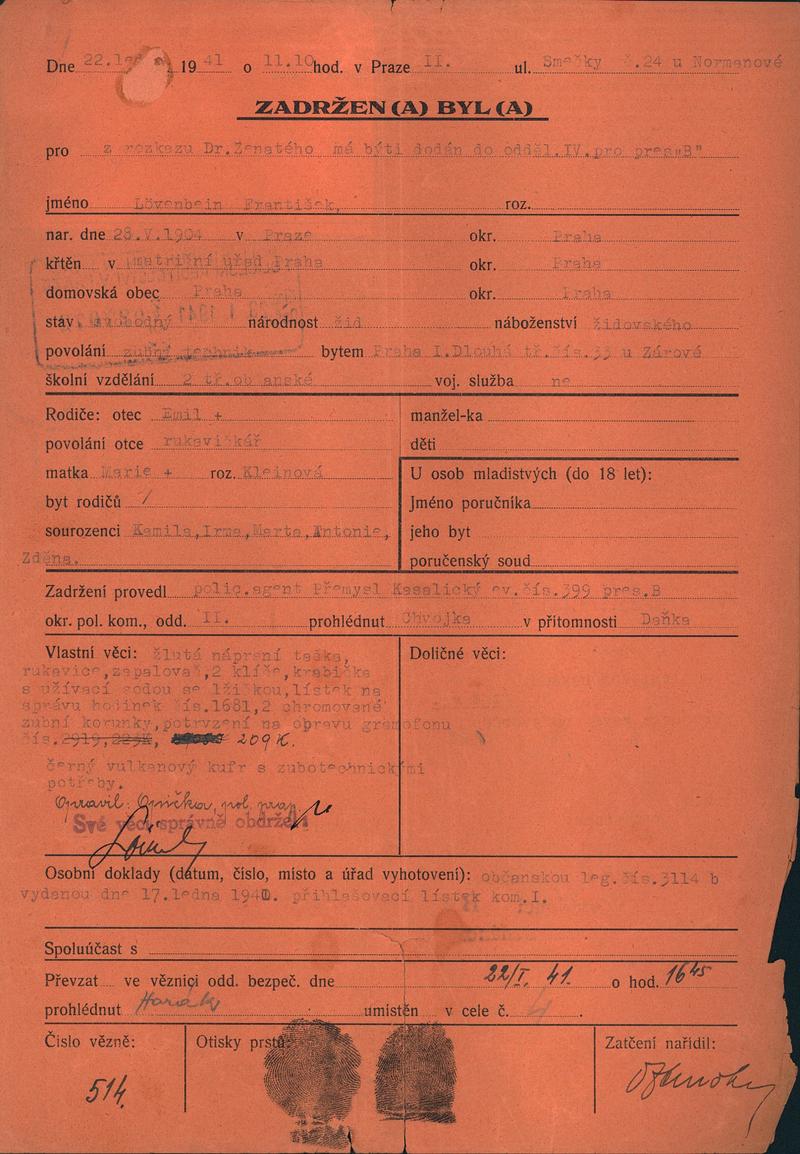 Dne 22. 19 41 o 11.10 hod. v Praze II. ul. Smečky č.24 u Normanové
ZADRŽEN(A) BYL(A)
pro z rozkazu Dr.Ženatého má býti dodán do odděl.IV.pro pres"B"
jméno Lövenbein František, roz.
nar. dne 28.V.1904 v Praze okr. Praha
křtěn v matriční úřad Praha okr. Praha
domovská obec Praha okr. Praha
stav svobodný národnost žid náboženství židovského
povolání zubní technik bytem Praha I.Dlouhá tř.čís.33 u Zárové
školní vzdělání 2 tř.občanské voj. služba ne
Rodiče: otec Emil + manžel-ka
povolání otce rukavičkář děti
matka Marie + roz. Kleinová U osob mladistvých (do 18 let):
byt rodičů / Jméno poručníka
sourozenci Kamila,Irma,Marta,Antonie, jeho byt
Zděna. poručenský soud
Zadržení provedl polic.agent Přemysl Kasalický ev.čís.399 pres.B
okr. pol. kom., odd. II. prohlédnut Chvojka v přítomnosti Daňka
Vlastní věci: žlutá náprsní taška, Doličné věci:
rukavice,zapalovač,2 klíče,krabička
s užívací sodou se lžičkou,lístek na
správu hodinek čís.1681,2 chromované
zubní korunky,potvrzení na opravu gramofonu
čís.2919, 209 K.
černý vulkanový kufr s zubotechnickými
potřeby.
Opravil:
Své věci správně obdržel:
Osobní doklady (dátum, číslo, místo a úřad vyhotovení): občanskou leg.čís.3114 b
vydanou dne 17.ledna 1940. přihlašovací lístek kom.I.
Spoluúčast s
Převzat ve věznici odd. bezpeč. dne 22/I. 41. o hod. 16 45
prohlédnut umístěn v cele č. 4.
Čislo vězně: Otisky prstů: Zatčení nařídil:
514.